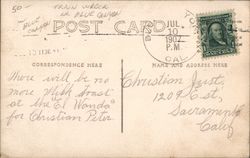 50-
TRAIN WRECK
IN BLUE CANYON
BLUE CANYON
POST CARD
JUL
10
1907
P.M.
CAL
CORRESPONDENCE HERE
NAME AND ADDRESS HERE
There will be no
more flesh roast
at the "El Wanda"
for Christian Peter
Christian Just,
1209 C st,
Sacramento
Calif